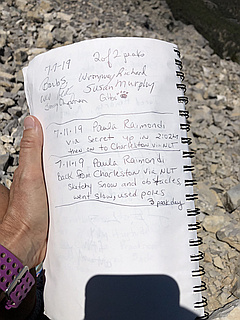 7-7-19 2 of 2 peaks
Barbs, Richard
Susan Murphy
Gita
7-11-19 Paula Raimondi
via Secret up in 2:02:26
then on to Charleston via NLT
7-11-19 Paula Raimondi
back from Charleston via NLT
Sketchy Snow and obstacles
went slow, used poles
3 peak day